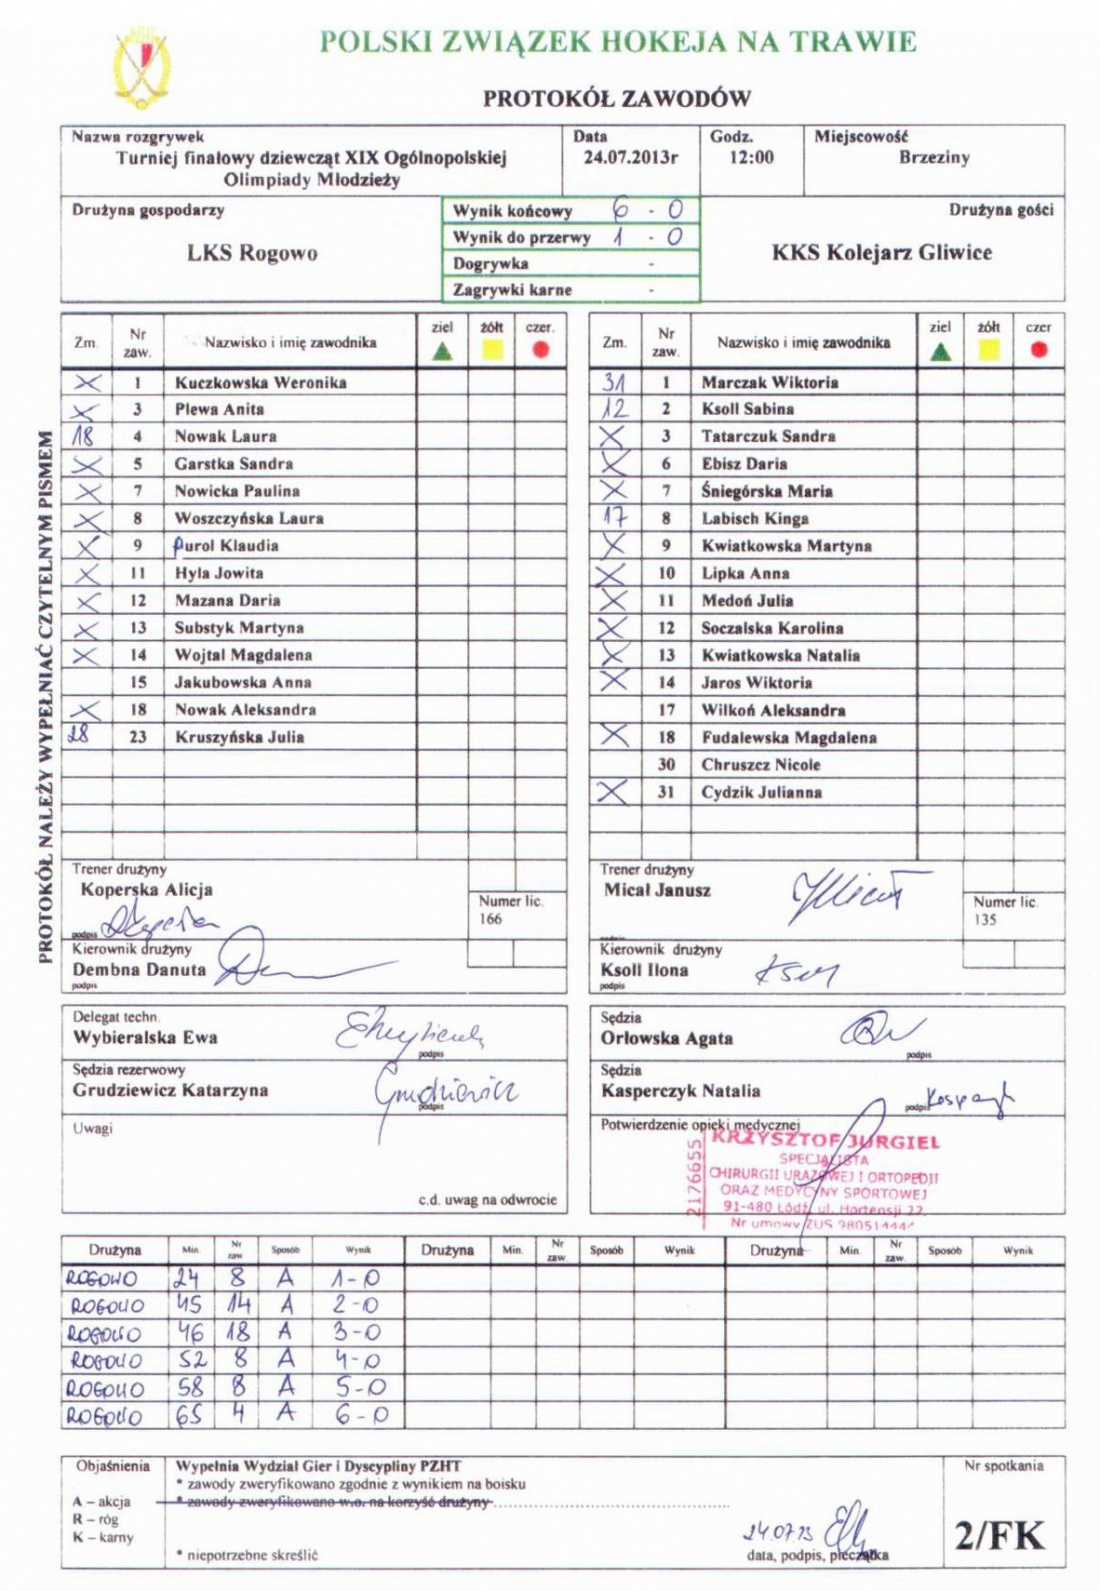 POLSKI ZWIĄZEK HOKEJA NA TRAWIE
PROTOKÓŁ ZAWODÓW
Nazwa rozgrywek
Turniej finałowy dziewcząt XIX Ogólnopolskiej
Olimpiady Młodzieży
Data
24.07.2013r
Godz.
12:00
Miejscowość
Brzeziny
Drużyna gospodarzy
LKS Rogowo
Wynik końcowy 6 - 0
Wynik do przerwy 1 - 0
Dogrywka -
Zagrywki karne -
Drużyna gości
KKS Kolejarz Gliwice
PROTOKÓŁ NALEŻY WYPEŁNIAĆ CZYTELNYM PISMEM
Zm. Nr zaw. Nazwisko i imię zawodnika ziel żółt czer.
X 1 Kuczkowska Weronika
X 3 Plewa Anita
18 4 Nowak Laura
X 5 Garstka Sandra
X 7 Nowicka Paulina
X 8 Woszczyńska Laura
X 9 Purol Klaudia
X 11 Hyla Jowita
X 12 Mazana Daria
X 13 Substyk Martyna
X 14 Wojtal Magdalena
15 Jakubowska Anna
X 18 Nowak Aleksandra
23 Kruszyńska Julia
Zm. Nr zaw. Nazwisko i imię zawodnika ziel żółt czer
31 1 Marczak Wiktoria
12 2 Ksoll Sabina
X 3 Tatarczuk Sandra
X 6 Ebisz Daria
X 7 Śniegórska Maria
17 8 Labisch Kinga
X 9 Kwiatkowska Martyna
X 10 Lipka Anna
X 11 Medoń Julia
X 12 Soczalska Karolina
X 13 Kwiatkowska Natalia
X 14 Jaros Wiktoria
17 Wilkoń Aleksandra
X 18 Fudalewska Magdalena
30 Chruszcz Nicole
X 31 Cydzik Julianna
Trener drużyny
Koperska Alicja
podpis
Numer lic.
166
Kierownik drużyny
Dembna Danuta
podpis
Trener drużyny
Micał Janusz
Numer lic.
135
Kierownik drużyny
Ksoll Ilona
podpis
Delegat techn.
Wybieralska Ewa
podpis
Sędzia rezerwowy
Grudziewicz Katarzyna
Grudziewicz
podpis
Uwagi
c.d. uwag na odwrocie
Sędzia
Orłowska Agata
podpis
Sędzia
Kasperczyk Natalia
podpis
Potwierdzenie opieki medycznej
2176655
KRZYSZTOF JURGIEL
SPECJALISTA
CHIRURGII URAZOWEJ I ORTOPEDII
ORAZ MEDYCYNY SPORTOWEJ
91-480 Łódź, ul. Hortensji 22
Nr umowy ZUS
Drużyna Min. Nr zaw. Sposób Wynik Drużyna Min. Nr zaw. Sposób Wynik Drużyna Min. Nr zaw. Sposób Wynik
ROGOWO 24 8 A 1-0
ROGOWO 45 14 A 2-0
ROGOWO 46 18 A 3-0
ROGOWO 52 8 A 4-0
ROGOWO 58 8 A 5-0
ROGOWO 65 4 A 6-0
Objaśnienia
A – akcja
R – róg
K – karny
Wypełnia Wydział Gier i Dyscypliny PZHT
* zawody zweryfikowano zgodnie z wynikiem na boisku
* zawody zweryfikowano w.o. na korzyść drużyny
* niepotrzebne skreślić
24.07.13
data, podpis, pieczątka
Nr spotkania
2/FK